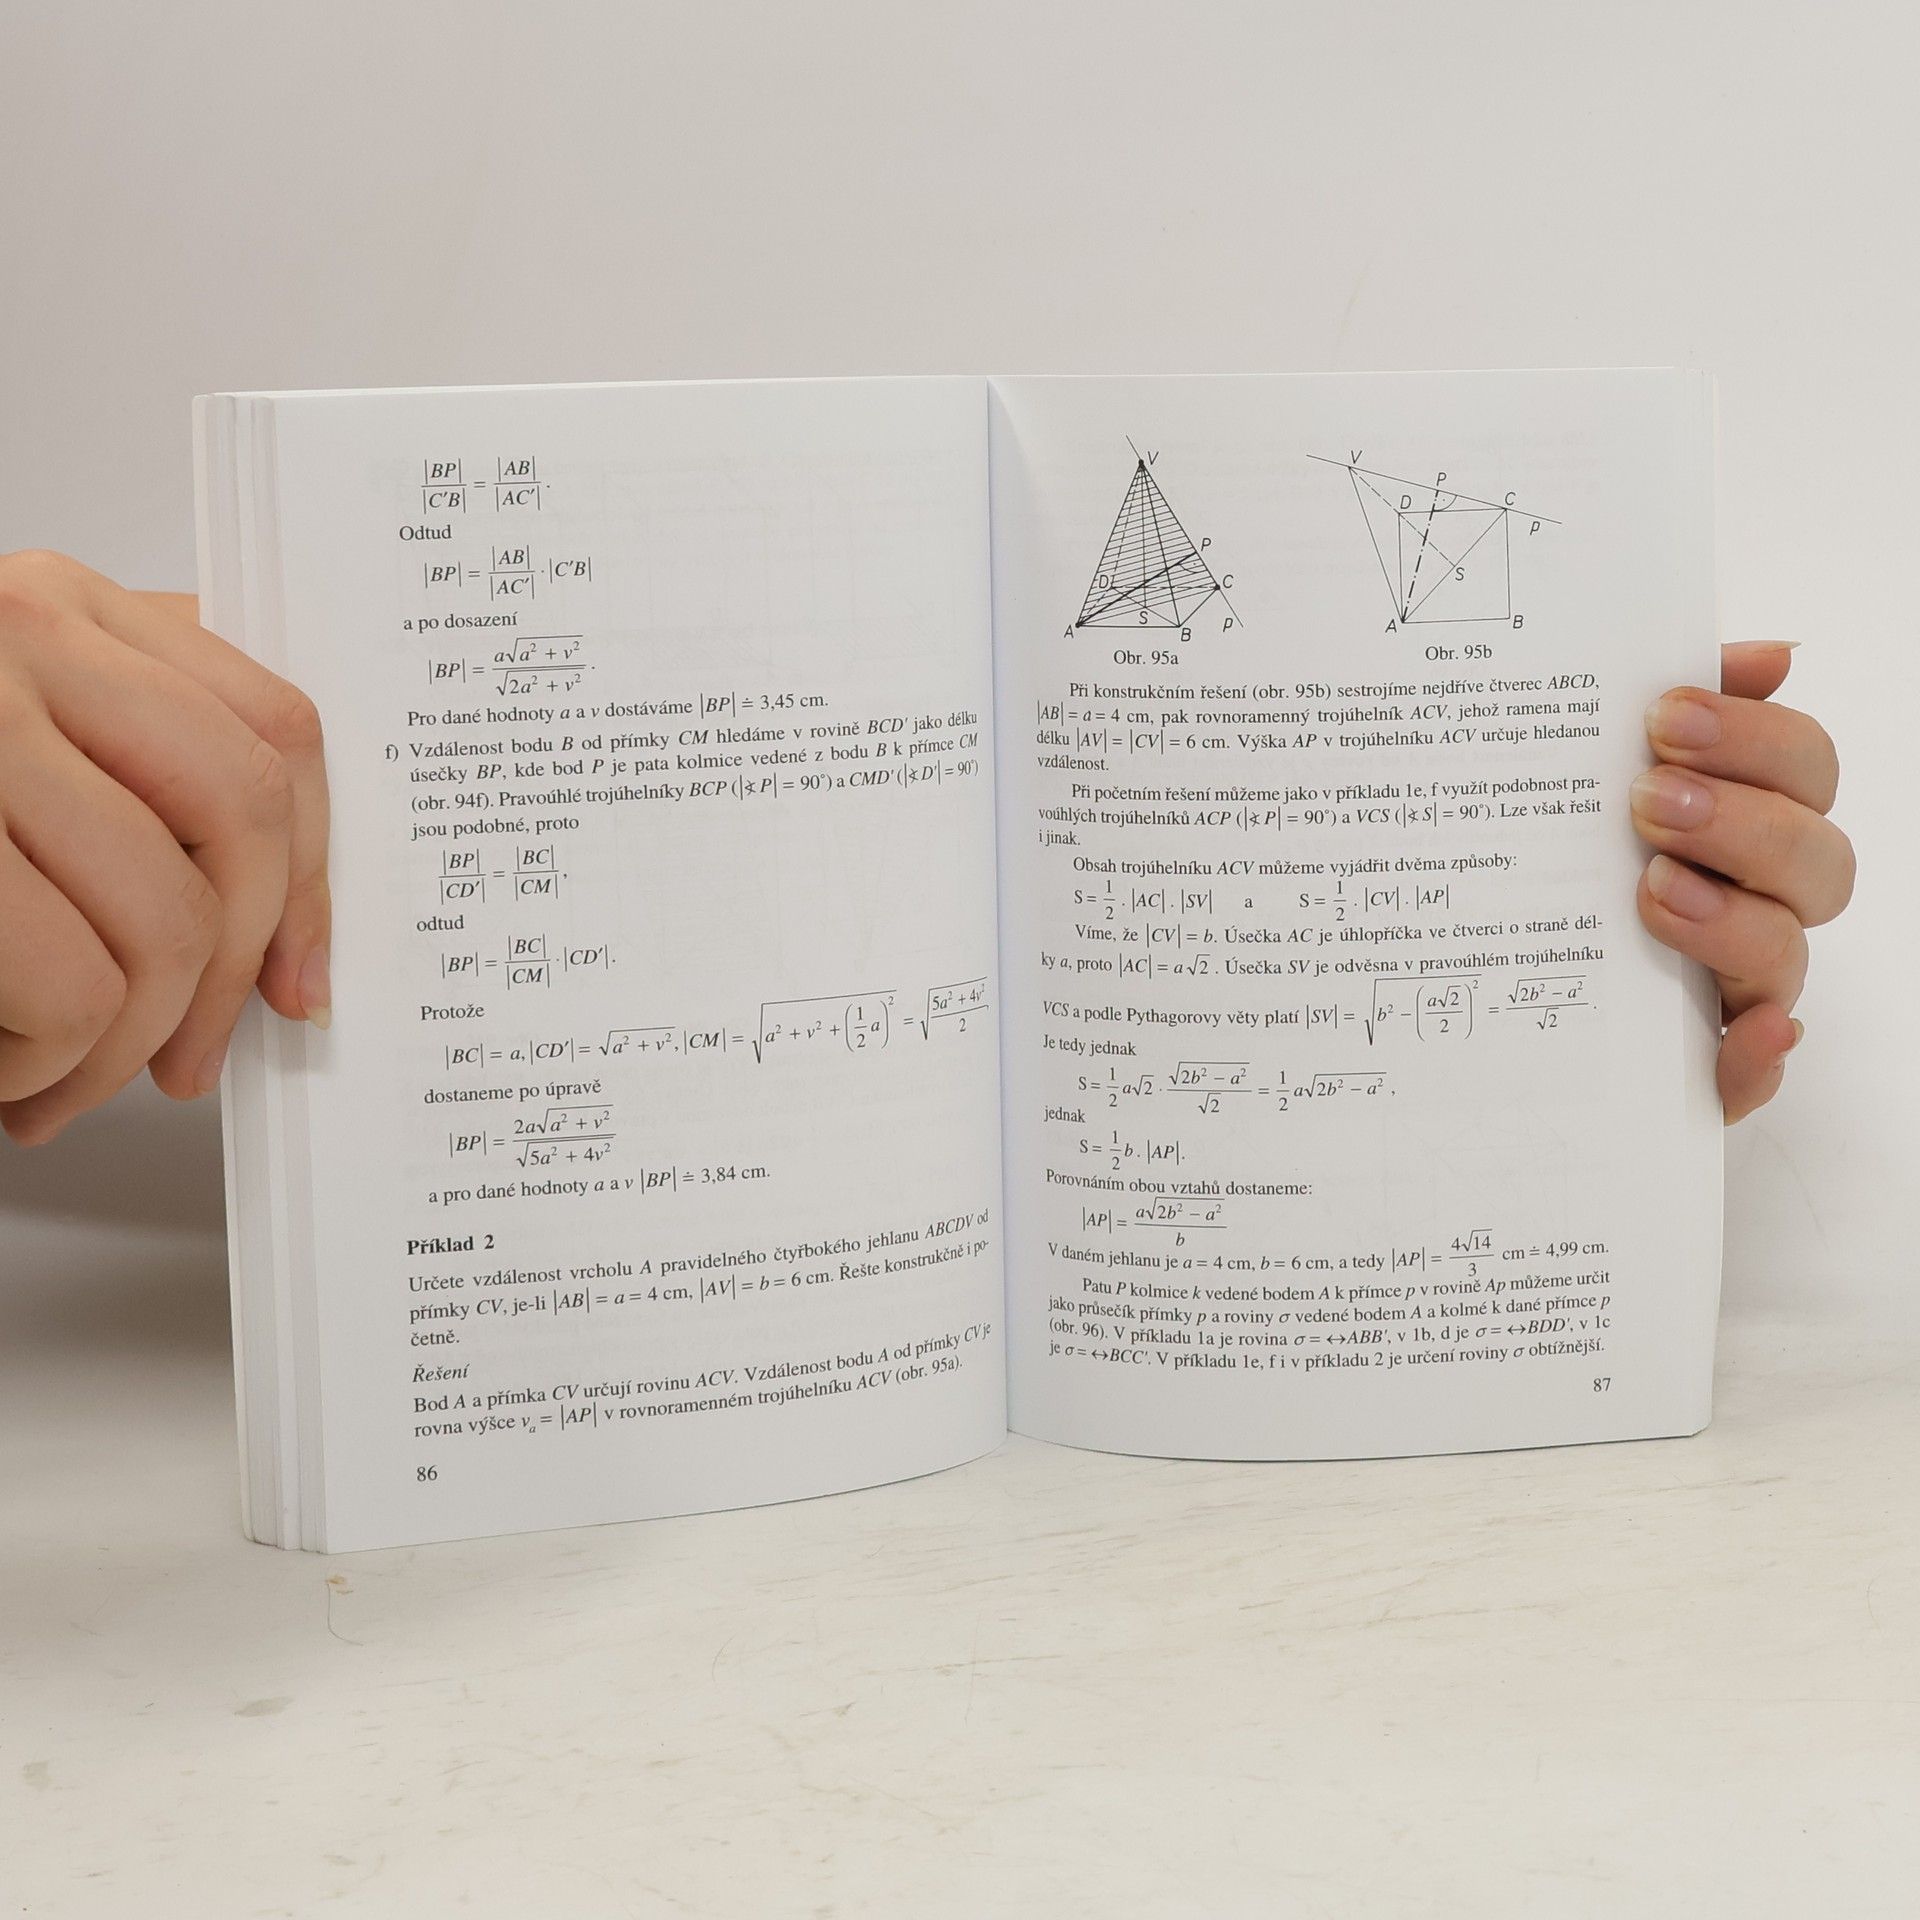 |BP| / |C'B| = |AB| / |AC'| .
Odtud
|BP| = |AB| / |AC'| · |C'B|
a po dosazení
|BP| = a√(a² + v²) / √(2a² + v²) .
Pro dané hodnoty a a v dostáváme |BP| ≐ 3,45 cm.
f) Vzdálenost bodu B od přímky CM hledáme v rovině BCD' jako délku
úsečky BP, kde bod P je pata kolmice vedené z bodu B k přímce CM
(obr. 94f). Pravoúhlé trojúhelníky BCP (|∢ P| = 90°) a CMD' (|∢ D'| = 90°)
jsou podobné, proto
|BP| / |CD'| = |BC| / |CM| ,
odtud
|BP| = |BC| / |CM| · |CD'| .
Protože
|BC| = a, |CD'| = √(a² + v²), |CM| = √(a² + v² + (1/2 a)²) = √(5a² + 4v² / 2)
dostaneme po úpravě
|BP| = 2a√(a² + v²) / √(5a² + 4v²)
a pro dané hodnoty a a v |BP| ≐ 3,84 cm.
Příklad 2
Určete vzdálenost vrcholu A pravidelného čtyřbokého jehlanu ABCDV od
přímky CV, je-li |AB| = a = 4 cm, |AV| = b = 6 cm. Řešte konstrukčně i po-
četně.
Řešení
Bod A a přímka CV určují rovinu ACV. Vzdálenost bodu A od přímky CV je
rovna výšce vₐ = |AP| v rovnoramenném trojúhelníku ACV (obr. 95a).
86
V
P
D
C
A
S
B
p
Obr. 95a
V
P
D
C
p
S
A
B
Obr. 95b
Při konstrukčním řešení (obr. 95b) sestrojíme nejdříve čtverec ABCD,
|AB| = a = 4 cm, pak rovnoramenný trojúhelník ACV, jehož ramena mají
délku |AV| = |CV| = 6 cm. Výška AP v trojúhelníku ACV určuje hledanou
vzdálenost.
Při početním řešení můžeme jako v příkladu 1e, f využít podobnost pra-
voúhlých trojúhelníků ACP (|∢ P| = 90°) a VCS (|∢ S| = 90°). Lze však řešit
i jinak.
Obsah trojúhelníku ACV můžeme vyjádřit dvěma způsoby:
S = 1/2 . |AC| . |SV| a S = 1/2 . |CV| . |AP|
Víme, že |CV| = b. Úsečka AC je úhlopříčka ve čtverci o straně dél-
ky a, proto |AC| = a√2 . Úsečka SV je odvěsna v pravoúhlém trojúhelníku
VCS a podle Pythagorovy věty platí |SV| = √(b² − (a√2 / 2)²) = √(2b² − a²) / √2 .
Je tedy jednak
S = 1/2 a√2 · √(2b² − a²) / √2 = 1/2 a√(2b² − a²) ,
jednak
S = 1/2 b . |AP|.
Porovnáním obou vztahů dostaneme:
|AP| = a√(2b² − a²) / b
V daném jehlanu je a = 4 cm, b = 6 cm, a tedy |AP| = 4√14 / 3 cm ≐ 4,99 cm.
Patu P kolmice k vedené bodem A k přímce p v rovině Ap můžeme určit
jako průsečík přímky p a roviny σ vedené bodem A a kolmé k dané přímce p
(obr. 96). V příkladu 1a je rovina σ = ↔ABB', v 1b, d je σ = ↔BDD', v 1c
je σ = ↔BCC'. V příkladu 1e, f i v příkladu 2 je určení roviny σ obtížnější.
87